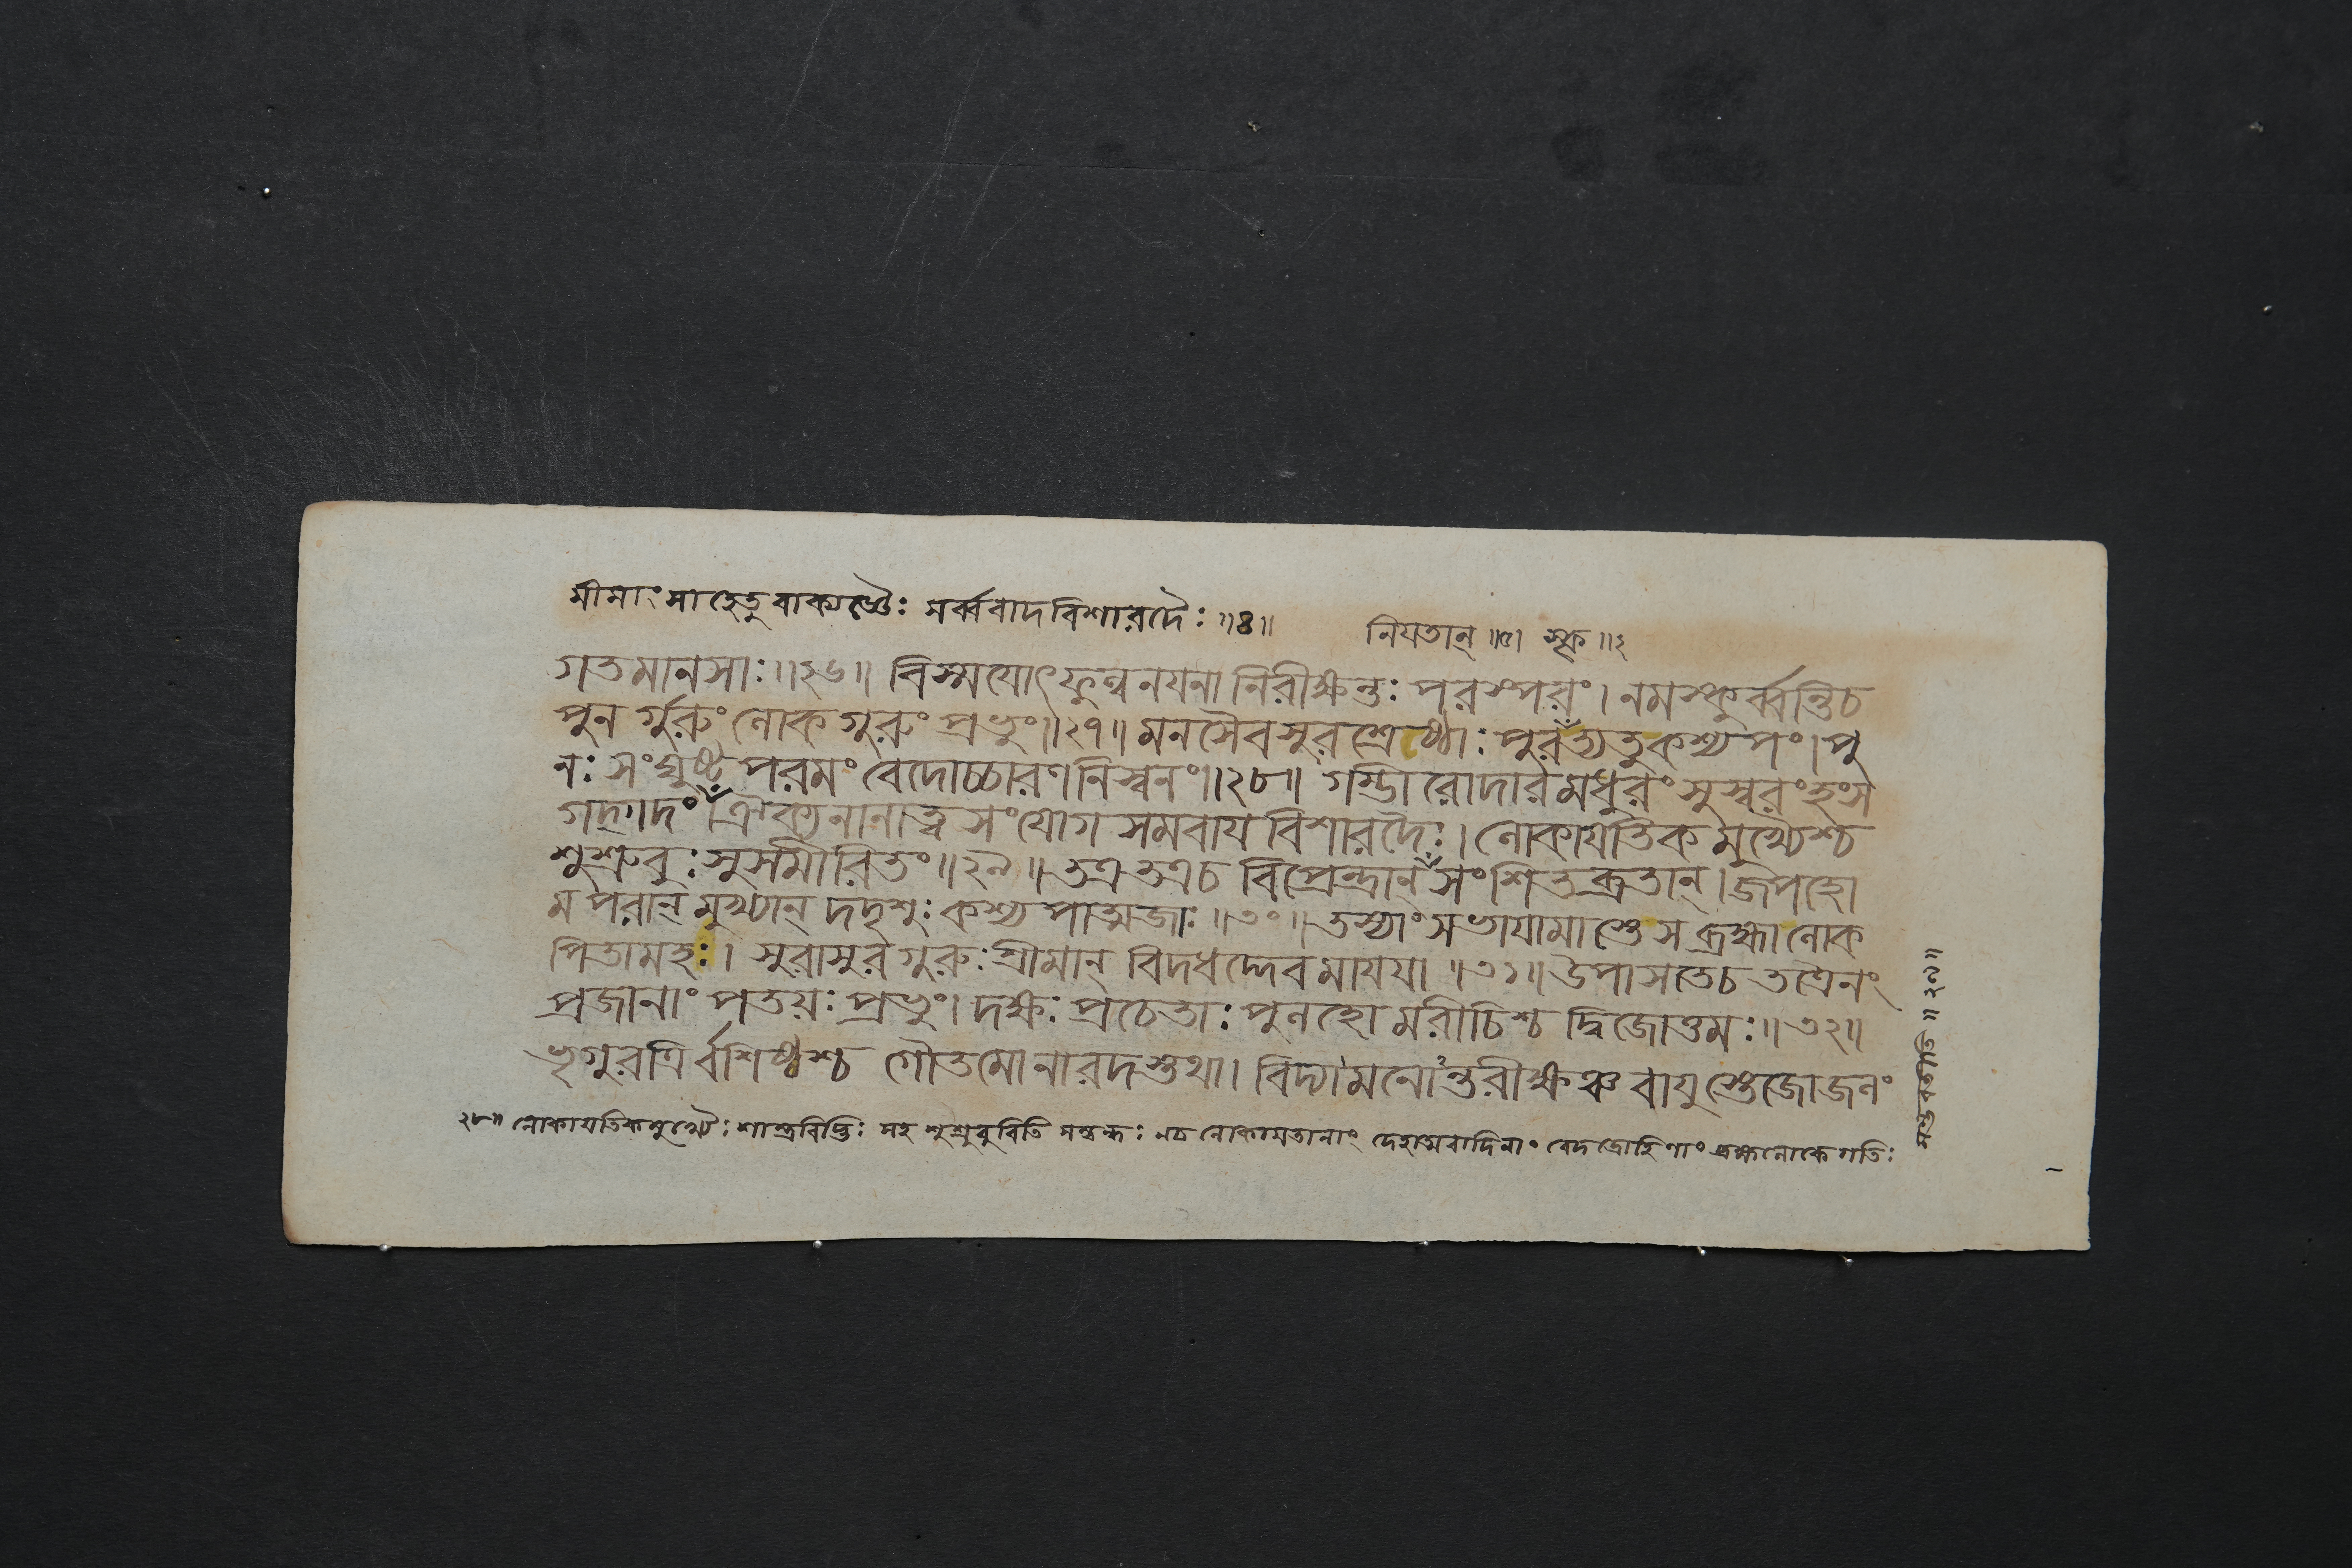 মীমাংসাহেতুবাক্যজ্ঞৈঃ সর্ব্ববাদবিশারদৈঃ॥৪॥
নিযতান্॥৫।
গতমানসাঃ॥২৬॥ বিস্মযোৎফুল্লনযনা নিরীক্ষন্তঃ পরস্পরং। নমস্কুর্ব্বন্তিচ
পুনর্গুরুং লোকগুরুং প্রভুং॥২৭॥ মনসৈবসুরশ্রেষ্ঠাঃ পুরস্কৃত্যতুকশ্যপং। পু
নঃ সংঘুষ্টং পরমং বেদোচ্চারণনিস্বনং॥২৮॥ গম্ভীরোদারমধুরং সুস্বরংহংস
গদ্গদং। ঐক্যনানাত্বসংযোগসমবাযবিশারদৈঃ। লোকাযতিকমুখ্যৈশ্চ
শুশ্রুবুঃ সুসমীরিতং॥২৯॥ তত্রতত্রচ বিপ্রেন্দ্রান্ সংশিতব্রতান্। জপহো
মপরান্ মুখ্যান্ দদৃশুঃ কশ্যপাত্মজাঃ॥৩০॥ তস্যাংসভাযামাস্তেস ব্রহ্মালোক
পিতামহঃ। সুরাসুরগুরুঃ শ্রীমান্ বিদধদ্দেবমাযযা॥৩১॥ উপাসতেচ তত্রৈনং
প্রজানাং পতয়ঃ প্রভুং। দক্ষঃ প্রচেতাঃ পুলহো মরীচিশ্চ দ্বিজোত্তমঃ॥৩২॥
ভৃগুরত্রির্বশিষ্ঠশ্চ গৌতমোনারদস্তথা। বিদ্যামনোঽন্তরীক্ষঞ্চ বাযুস্তেজোজলং
২৮॥ লোকাযতিকমুখ্যৈঃ শাস্ত্রবিদ্ভিঃ সহ শুশ্রুবুরিতি সম্বন্ধঃ নচ লোকাযতানাং দেহাত্মবাদিনাং বেদদ্রোহিণাং ব্রহ্মলোকে গতিঃ